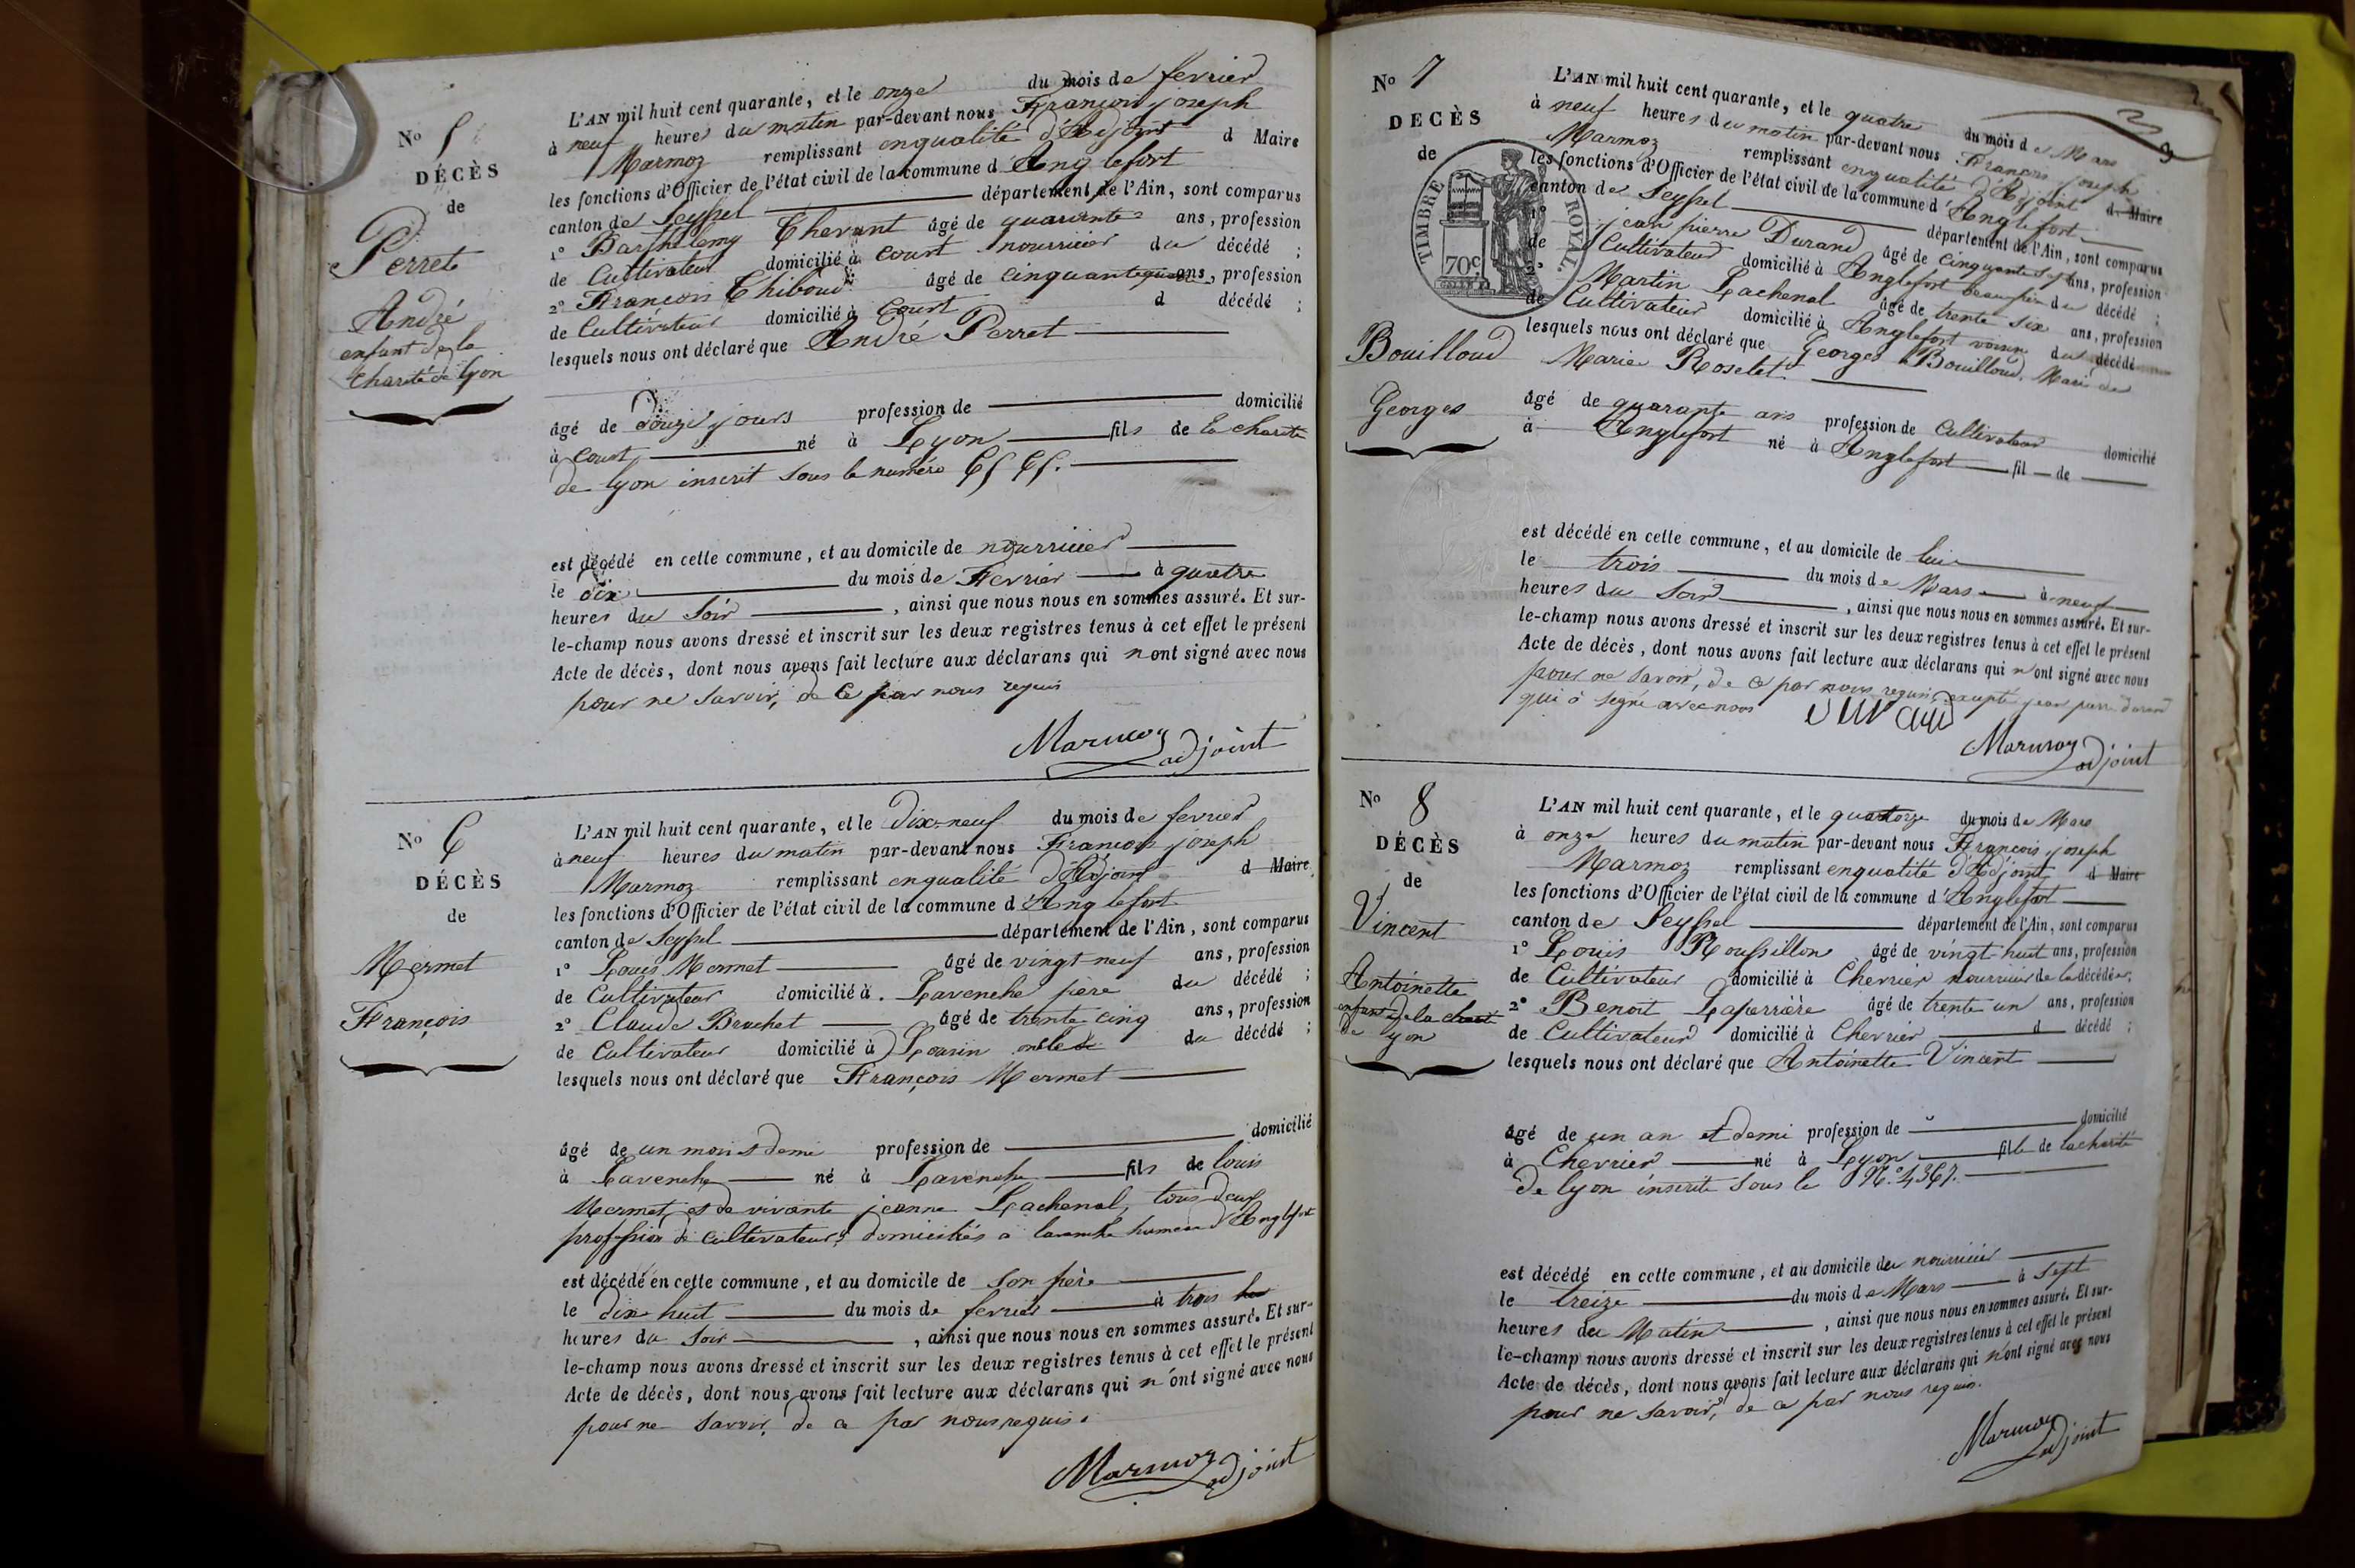 No 5
DÉCÈS
de
Perret
André
enfant de la
Charité de lyon
L'AN mil huit cent quarante, et le onze du mois de fevrier
à neuf heures du matin par-devant nous François joseph
Marmoz remplissant enqualité d'Adjoint d Maire
les fonctions d'Officier de l'état civil de la commune d Anglefort
canton de Seyssel département de l'Ain, sont comparus
1° Barthelemy Chevant âgé de quarante ans, profession
de Cultivateur domicilié à Court nourricier du décédé ;
2° François Thiboud âgé de cinquante ans, profession
de Cultivateur domicilié à Court d décédé ;
lesquels nous ont déclaré que André Perret
âgé de douze jours profession de domicilié
à Court né à Lyon fils de la charité
de lyon inscrit sous le numéro
est décédé en cette commune, et au domicile de nourricier
le dix du mois de Fevrier à quatre
heures du Soir , ainsi que nous nous en sommes assuré. Et sur-
le-champ nous avons dressé et inscrit sur les deux registres tenus à cet effet le présent
Acte de décès, dont nous avons fait lecture aux déclarans qui n'ont signé avec nous
pour ne savoir, de ce par nous requis
Marmoz adjoint
No 6
DÉCÈS
de
Mermet
François
L'AN mil huit cent quarante, et le Dix-neuf du mois de fevrier
à neuf heures du matin par-devant nous François joseph
Marmoz remplissant enqualité d'Adjoint d Maire
les fonctions d'Officier de l'état civil de la commune d'Anglefort
canton de Seyssel département de l'Ain, sont comparus
1° Louis Mermet âgé de vingt neuf ans, profession
de Cultivateur domicilié à Lavenche père du décédé ;
2° Claude Bruchet âgé de trente cinq ans, profession
de Cultivateur domicilié à du décédé ;
lesquels nous ont déclaré que François Mermet
âgé de un mois demi profession de domicilié
à Lavenche né à Lavenche fils de louis
Mermet, et de vivante jeanne Lachenal, tous deux
profession de cultivateurs domiciliés à lavenche hameau d'Anglefort
est décédé en cette commune, et au domicile de son père
le dix huit du mois de fevrier à trois
heures du Soir , ainsi que nous nous en sommes assuré. Et sur-
le-champ nous avons dressé et inscrit sur les deux registres tenus à cet effet le présent
Acte de décès, dont nous avons fait lecture aux déclarans qui n'ont signé avec nous
pour ne savoir, de ce par nous requis.
Marmoz adjoint
3
No 7
DÉCÈS
de
TIMBRE ROYAL.
70c
Bouilloud
Georges
L'AN mil huit cent quarante, et le quatre du mois de Mars
à neuf heures du matin par-devant nous François joseph
Marmoz remplissant enqualité d'Adjoint d Maire
les fonctions d'Officier de l'état civil de la commune d'Anglefort
canton de Seyssel département de l'Ain, sont comparus
1° jean pierre Durand âgé de cinquante sept ans, profession
de Cultivateur domicilié à Anglefort beaufrère du décédé ;
2° Martin Lachenal âgé de trente six ans, profession
de Cultivateur domicilié à Anglefort voisin du décédé
lesquels nous ont déclaré que Georges Bouilloud, Mari de
Marie Roselet
âgé de quarante ans profession de Cultivateur domicilié
à Anglefort né à Anglefort fil de
est décédé en cette commune, et au domicile de lui
le trois du mois de Mars à neuf
heures du Soir , ainsi que nous nous en sommes assuré. Et sur-
le-champ nous avons dressé et inscrit sur les deux registres tenus à cet effet le présent
Acte de décès, dont nous avons fait lecture aux déclarans qui n'ont signé avec nous
pour ne savoir, de ce par nous requis, excepté jean pierre Durand
qui à signé avec nous Durand
Marmoz adjoint
No 8
DÉCÈS
de
Vincent
Antoinette
enfant de la charité
de lyon
L'AN mil huit cent quarante, et le quatorze du mois de Mars
à onze heures du matin par-devant nous François joseph
Marmoz remplissant enqualité d'Adjoint d Maire
les fonctions d'Officier de l'état civil de la commune d'Anglefort
canton de Seyssel département de l'Ain, sont comparus
1° Louis Roussillon âgé de vingt-huit ans, profession
de Cultivateur domicilié à Chevrier nourricier de la décédée ;
2° Benoit Laperrière âgé de trente un ans, profession
de Cultivateur domicilié à Chevrier d décédé ;
lesquels nous ont déclaré que Antoinette Vincent
âgé de un an et demi profession de domicilié
à Chevrier né à Lyon fille de la charité
de lyon inscrite sous le N° 4367.
est décédé en cette commune, et au domicile du nourricier
le treize du mois de Mars à sept
heures du Matin , ainsi que nous nous en sommes assuré. Et sur-
le-champ nous avons dressé et inscrit sur les deux registres tenus à cet effet le présent
Acte de décès, dont nous avons fait lecture aux déclarans qui n'ont signé avec nous
pour ne savoir, de ce par nous requis.
Marmoz adjoint